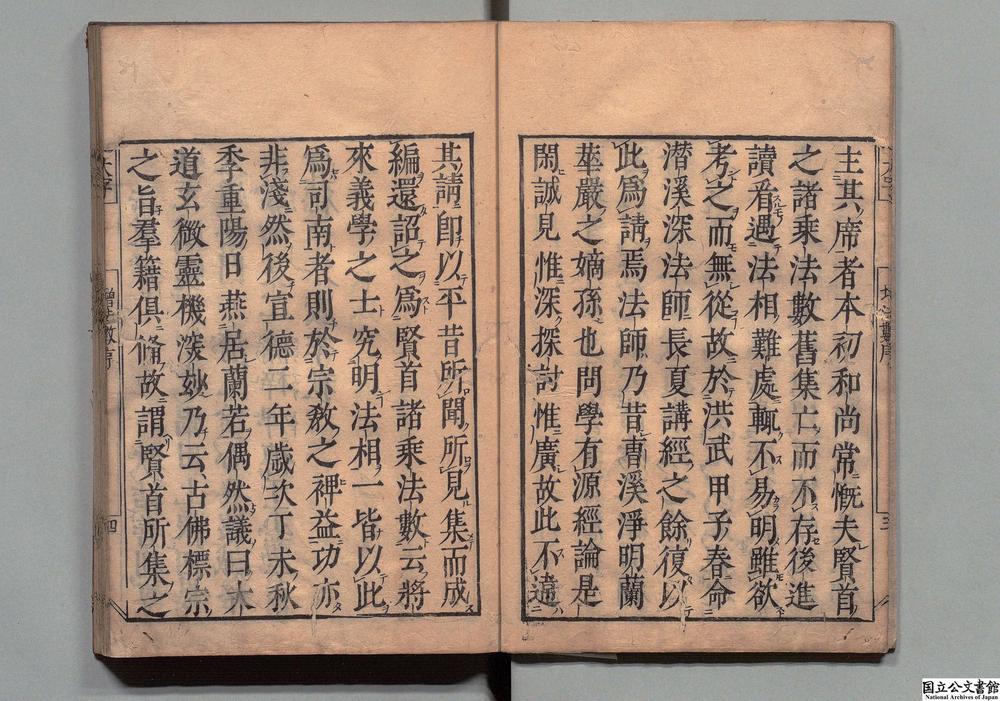 主其席者本初和尚常慨夫賢首
之諸乘法數舊集亡而不存後進
讀看遇法相難處輒不易明雖欲
考之而無從故於洪武甲子春命
潛溪深法師長夏講經之餘復以
此爲請焉法師乃昔曹溪淨明蘭
華嚴之嫡孫也問學有源經論是
閑誠見惟深探討惟廣故此不違
三
其請即以平昔所聞所見集而成
編還詔之爲賢首諸乘法數云將
來義學之士究明法相一皆以此
爲司南者則於宗教之裨益功亦
非淺然後宣德二年歲次丁未秋
季重陽日燕居蘭若偶然議曰夫
道玄微靈機深妙乃云古佛標宗
之旨羣籍俱備故謂賢首所集之
四
国立公文書館
National Archives of Japan